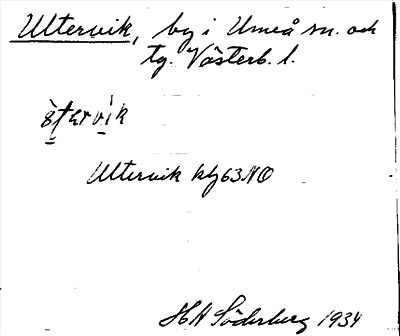 Ultervik, by i Umeå sn. och
tg. Västerb. l.
Ultervik kbl 63 NO
HA Söderberg 1934